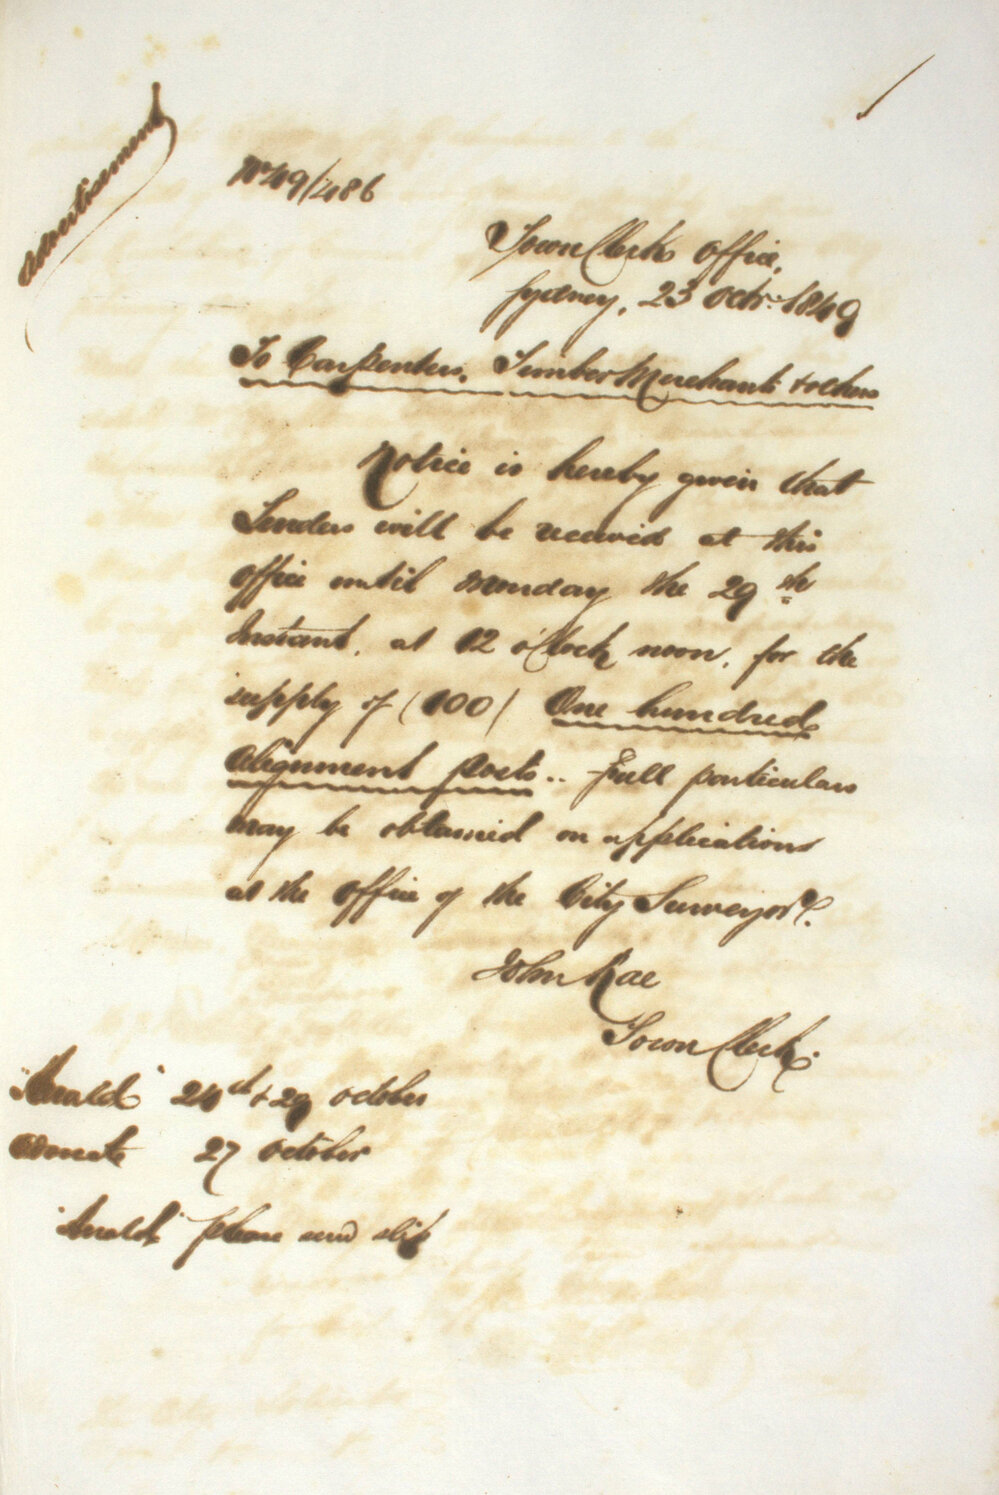 Advertisement
No 49/486
Town Clerks Office,
Sydney, 23 Octr. 1849
To Carpenters, Timber Merchants & others
Notice is hereby given that
Tenders will be received at this
office until Monday the 29th
Instant, at 12 o'Clock noon, for the
supply of (100) One hundred
alignment posts.. Full particulars
may be obtained on applications
at the office of the City Surveyor.
John Rae
Town Clerk.
"Herald" 24th & 29 October
27 October
"Herald" please send slip